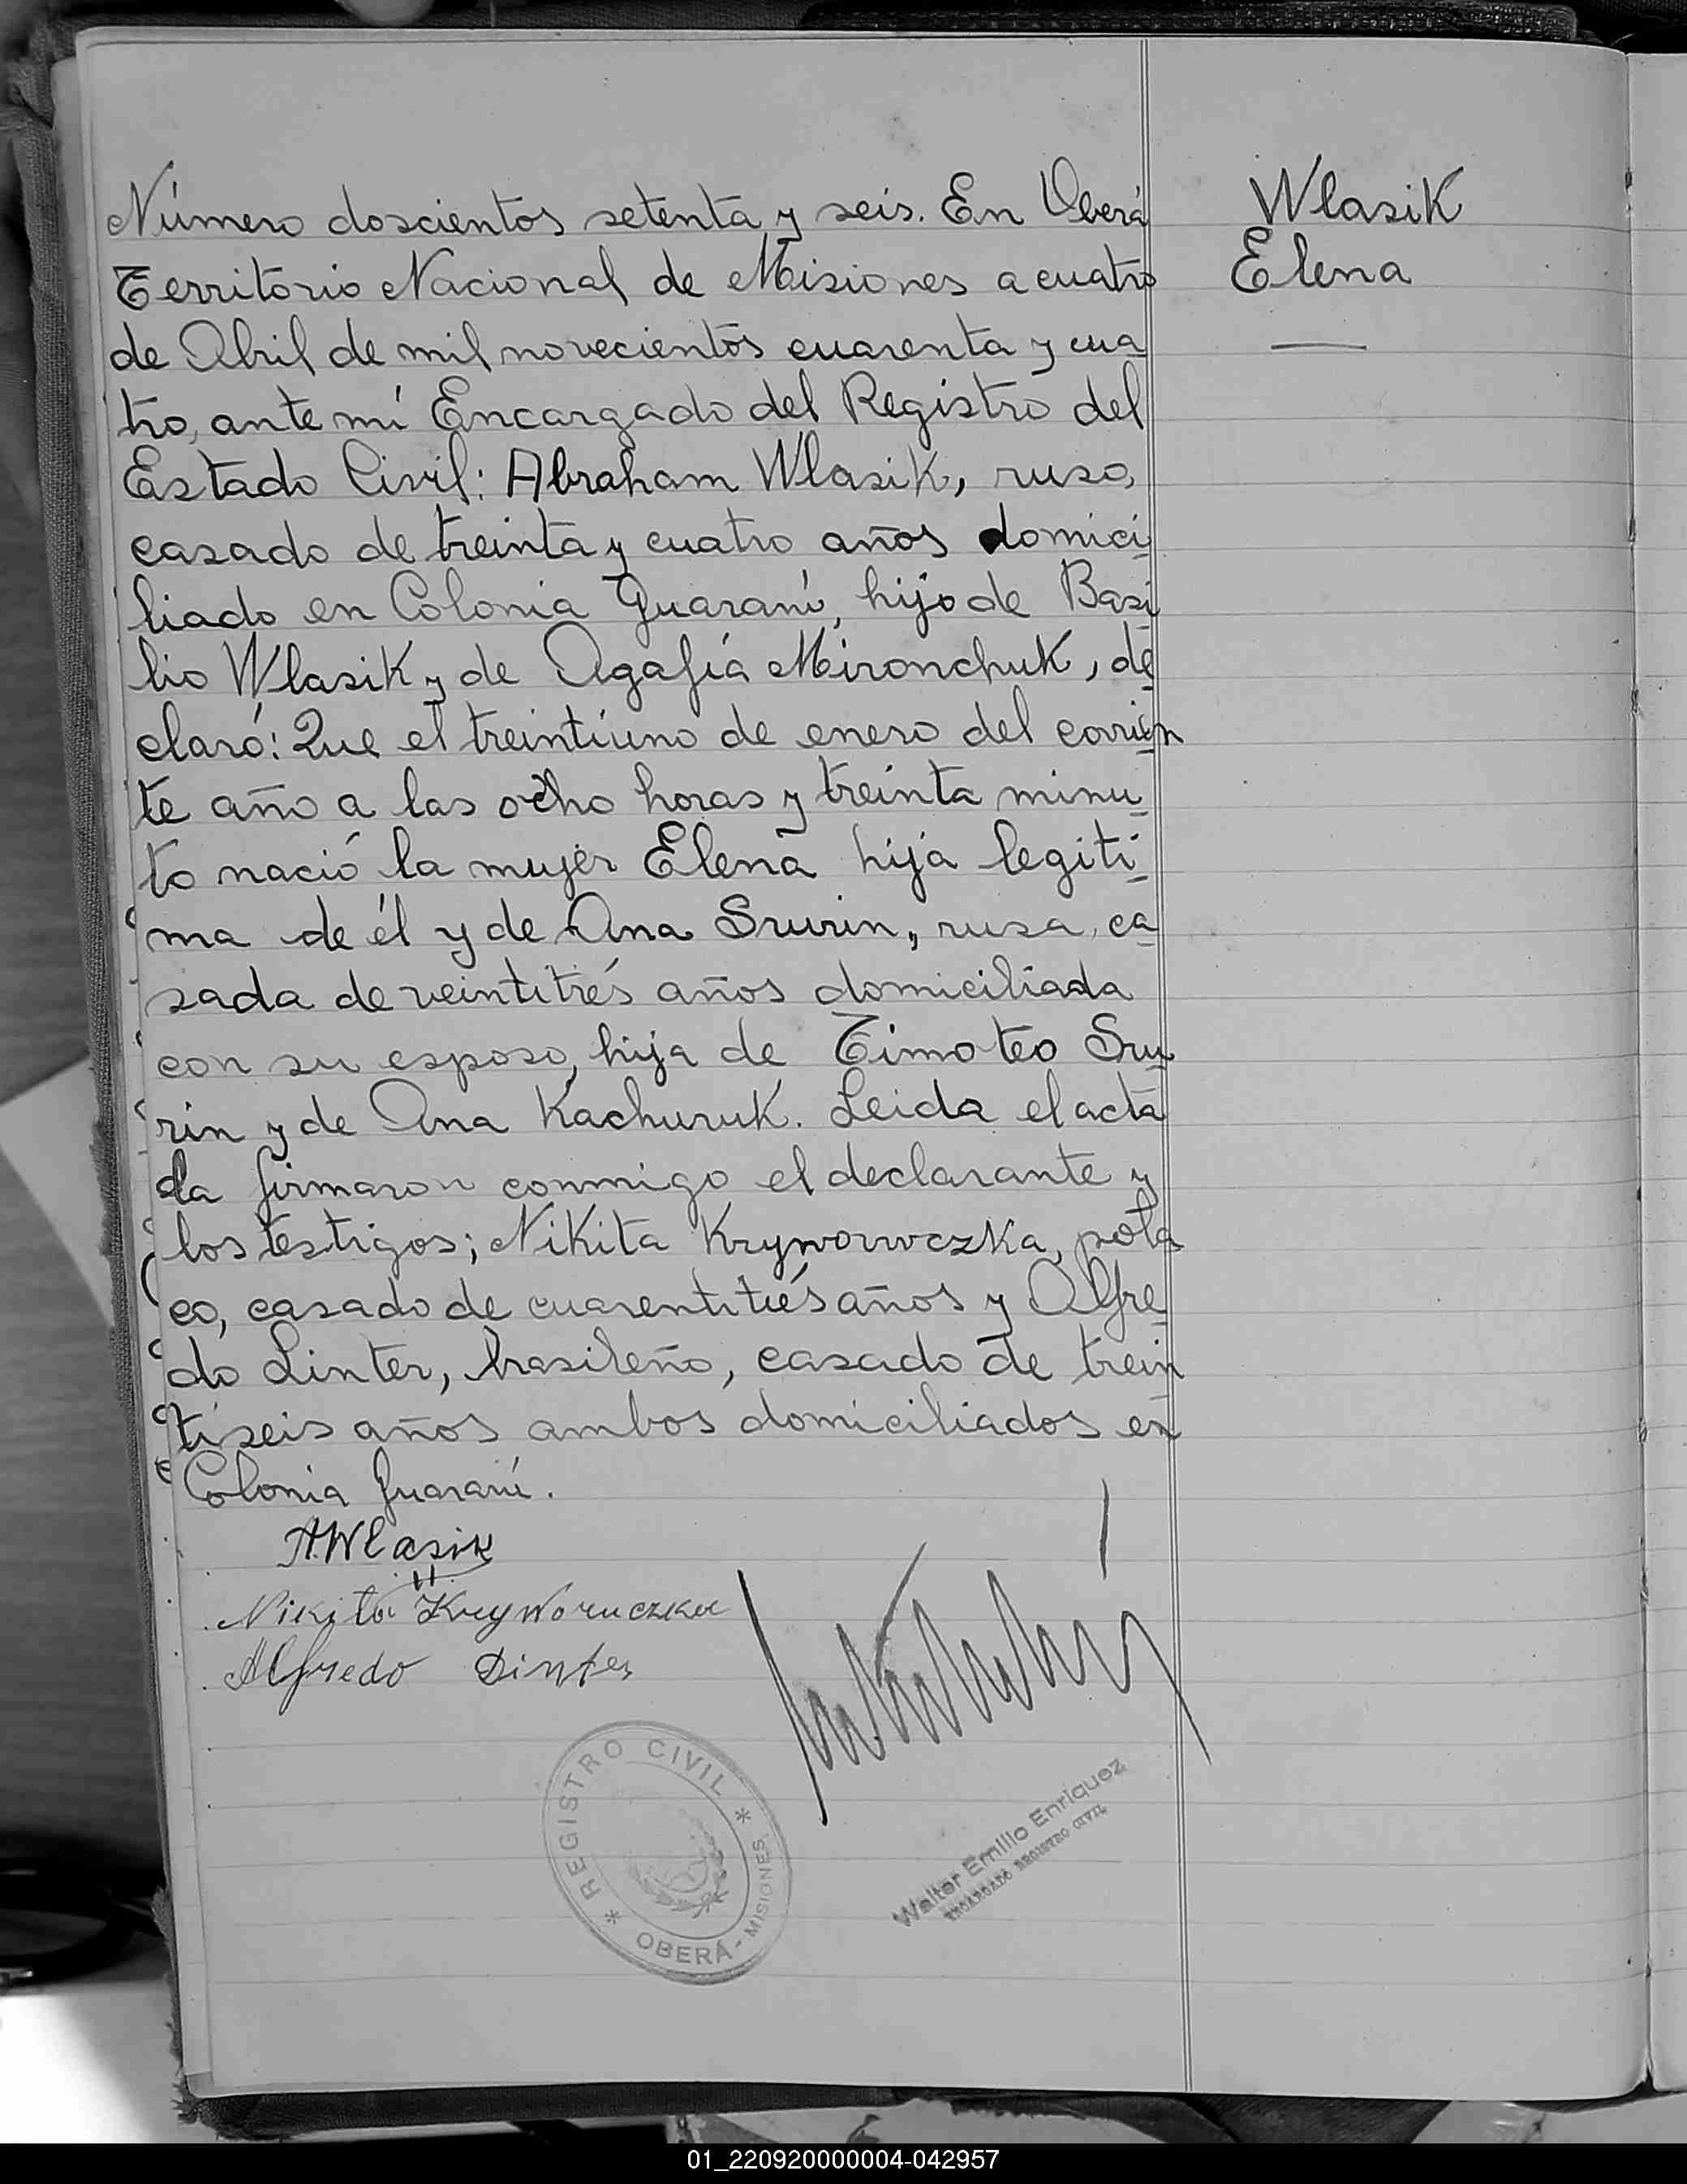 Número doscientos setenta y seis. En Oberá
Territorio Nacional de Misiones a cuatro
de Abril de mil novecientos cuarenta y cua
tro, ante mí Encargado del Registro del
Estado Civil: Abraham Wlasik, ruso,
casado de treinta y cuatro años domici
liado en Colonia Guaraní, hijo de Basi
lio Wlasik y de Agafia Mironchuk, de
claró: Que el treintiuno de enero del corrien
te año a las ocho horas y treinta minu
to nació la mujer Elena hija legiti
ma de él y de Ana Srurin, rusa, ca
sada de veintitrés años domiciliada
con su esposo, hija de Timoteo Sru
rin y de Ana Kachuruk. Leida el acta
la firmaron conmigo el declarante y
los testigos; Nikita Kryworuczka, pola
co, casado de cuarentitrés años y Alfre
do Linter, brasileño, casado de trein
tiseis años ambos domiciliados en
Colonia Guaraní.
Wlasik
Elena
A. Wlasik
Nikita Kryworuczka
Alfredo Dinter
REGISTRO CIVIL
OBERÁ - MISIONES
Walter Emilio Enriquez
ENCARGADO REGISTRO CIVIL
01_220920000004-042957